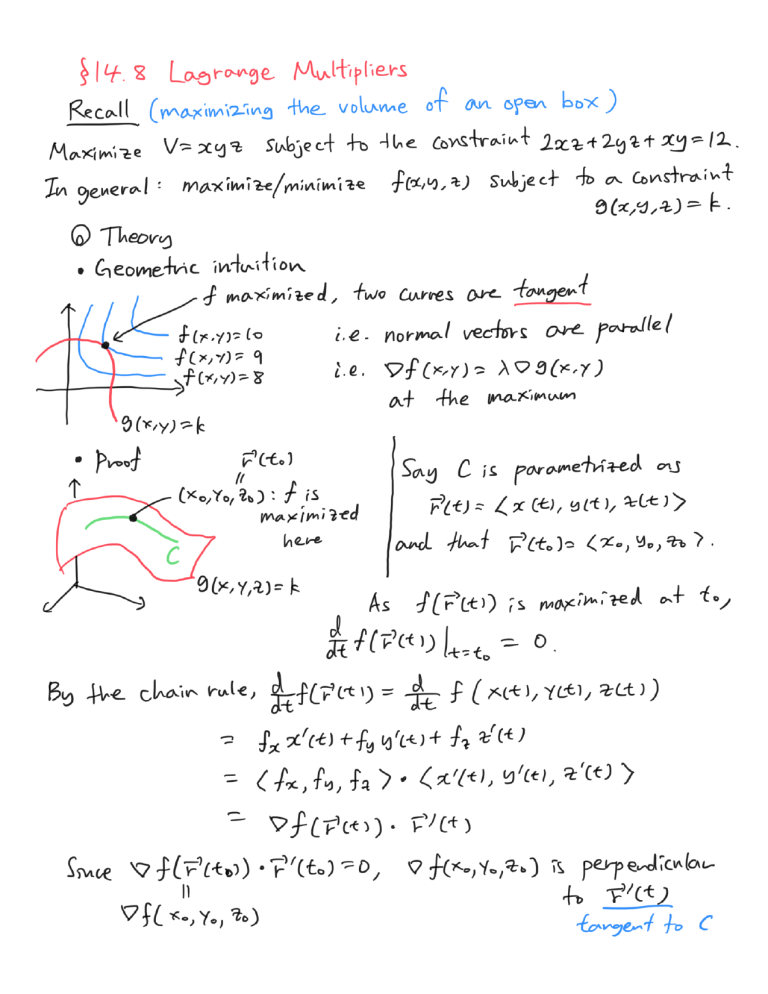 §14.8 Lagrange Multipliers
Recall (maximizing the volume of an open box)
Maximize V=xyz subject to the constraint 2xz+2yz+xy=12.
In general: maximize/minimize f(x,y,z) subject to a constraint
g(x,y,z)=k.
⓪ Theory
• Geometric intuition
f maximized, two curves are tangent
f(x,y)=10
f(x,y)=9
f(x,y)=8
g(x,y)=k
i.e. normal vectors are parallel
i.e. ∇f(x,y)=λ∇g(x,y)
at the maximum
• Proof
r⃗(t₀)
=
(x₀,y₀,z₀): f is
maximized
here
C
g(x,y,z)=k
Say C is parametrized as
r⃗(t)=<x(t), y(t), z(t)>
and that r⃗(t₀)=<x₀, y₀, z₀>.
As f(r⃗(t)) is maximized at t₀,
d/dt f(r⃗(t))|t=t₀ = 0.
By the chain rule, d/dt f(r⃗(t)) = d/dt f(x(t), y(t), z(t))
= fₓ x'(t)+f_y y'(t)+f_z z'(t)
= <fₓ, f_y, f_z>•<x'(t), y'(t), z'(t)>
= ∇f(r⃗(t))•r⃗'(t)
Since ∇f(r⃗(t₀))•r⃗'(t₀)=0, ∇f(x₀,y₀,z₀) is perpendicular
=
to r⃗'(t)
∇f(x₀,y₀,z₀)
tangent to C